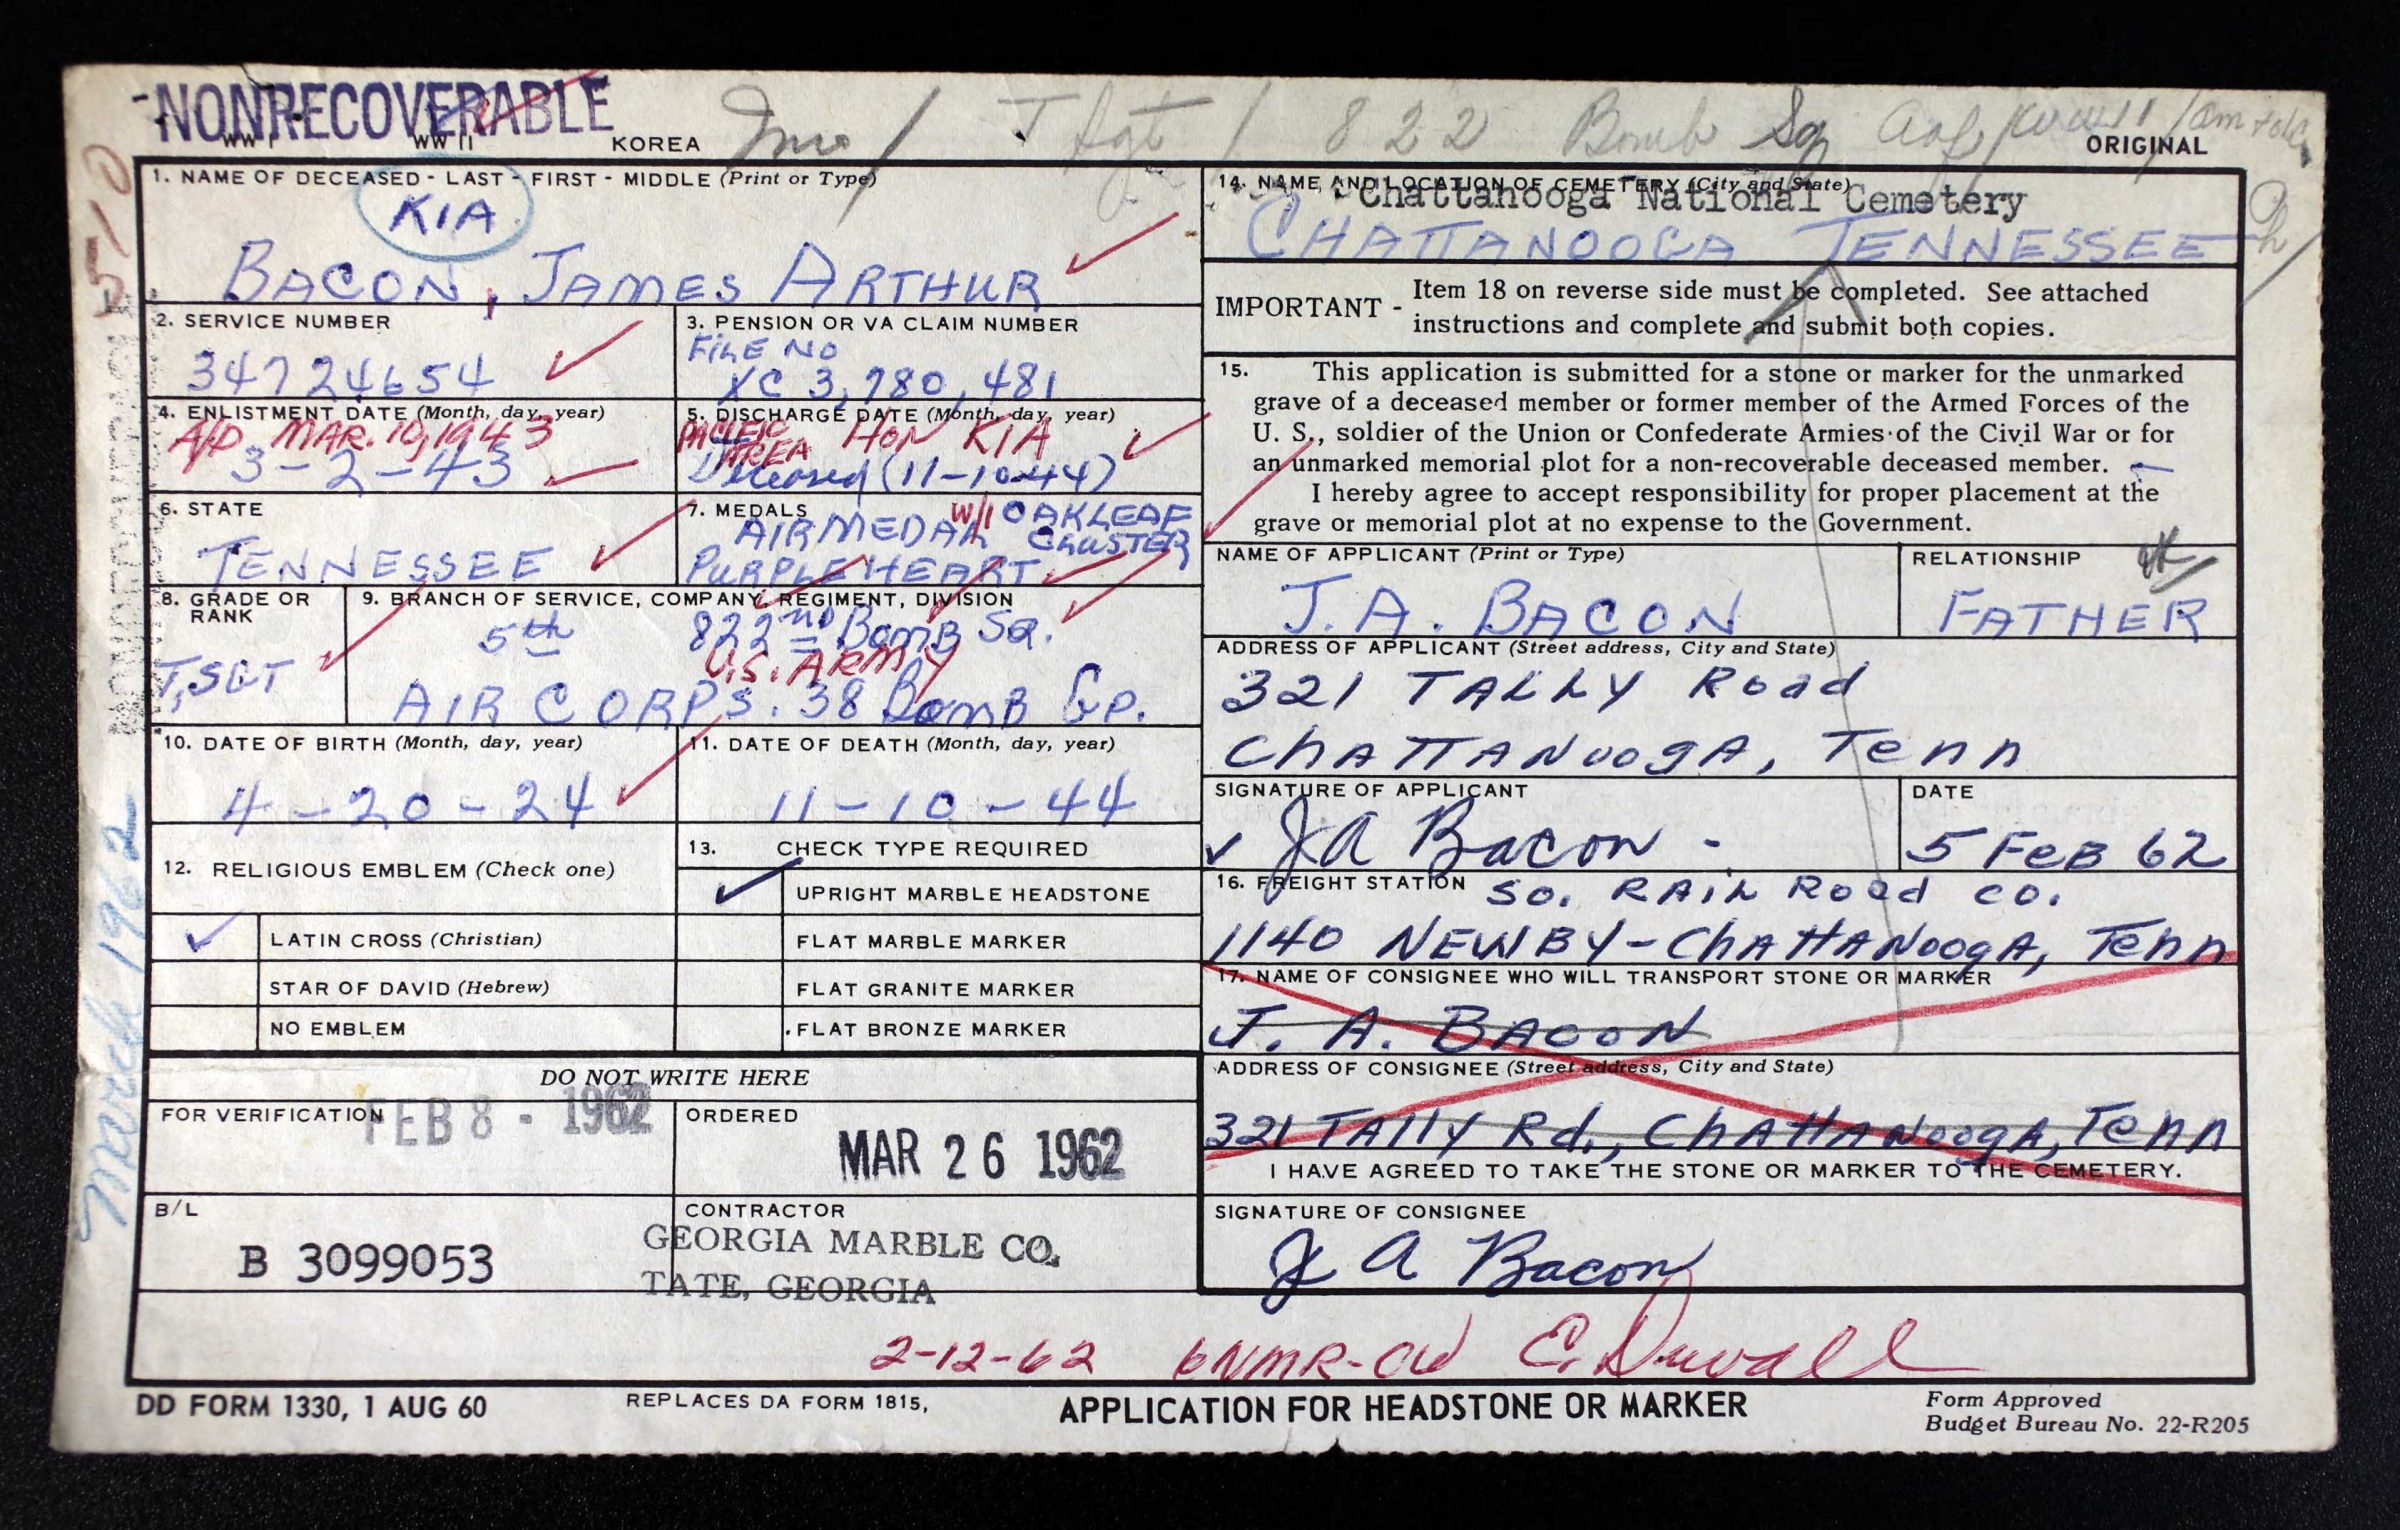 NONRECOVERABLE
WW I WW II KOREA
T Sgt / 822 Bomb Sq
ORIGINAL
510
1. NAME OF DECEASED - LAST - FIRST - MIDDLE (Print or Type)
KIA
BACON, JAMES ARTHUR
2. SERVICE NUMBER
34724654
3. PENSION OR VA CLAIM NUMBER
FILE NO
XC 3,780,481
4. ENLISTMENT DATE (Month, day, year)
A/D MAR. 10, 1943
3-2-43
5. DISCHARGE DATE (Month, day, year)
PACIFIC AREA HON KIA
Deceased (11-10-44)
6. STATE
TENNESSEE
7. MEDALS
AIR MEDAL W/1 OAKLEAF CLUSTER
PURPLE HEART
8. GRADE OR RANK
T, SGT
9. BRANCH OF SERVICE, COMPANY, REGIMENT, DIVISION
5th 822ND BOMB SQ.
U.S. ARMY
AIR CORPS. 38 BOMB GP.
10. DATE OF BIRTH (Month, day, year)
4-20-24
11. DATE OF DEATH (Month, day, year)
11-10-44
12. RELIGIOUS EMBLEM (Check one)
LATIN CROSS (Christian)
STAR OF DAVID (Hebrew)
NO EMBLEM
13. CHECK TYPE REQUIRED
UPRIGHT MARBLE HEADSTONE
FLAT MARBLE MARKER
FLAT GRANITE MARKER
FLAT BRONZE MARKER
DO NOT WRITE HERE
FOR VERIFICATION
FEB 8 - 1962
ORDERED
MAR 26 1962
B/L
B 3099053
CONTRACTOR
GEORGIA MARBLE CO.
TATE, GEORGIA
March 1962
14. NAME AND LOCATION OF CEMETERY (City and State)
Chattanooga National Cemetery
CHATTANOOGA TENNESSEE
IMPORTANT - Item 18 on reverse side must be completed. See attached
instructions and complete and submit both copies.
15. This application is submitted for a stone or marker for the unmarked
grave of a deceased member or former member of the Armed Forces of the
U. S., soldier of the Union or Confederate Armies of the Civil War or for
an unmarked memorial plot for a non-recoverable deceased member.
I hereby agree to accept responsibility for proper placement at the
grave or memorial plot at no expense to the Government.
NAME OF APPLICANT (Print or Type)
J. A. BACON
RELATIONSHIP
FATHER
ADDRESS OF APPLICANT (Street address, City and State)
321 TALLY Road
ChATTANoogA, Tenn
SIGNATURE OF APPLICANT
J A Bacon
DATE
5 FeB 62
16. FREIGHT STATION So. RAIL Road Co.
1140 NEWBY-ChATTANoogA, Tenn
17. NAME OF CONSIGNEE WHO WILL TRANSPORT STONE OR MARKER
J. A. BACON
ADDRESS OF CONSIGNEE (Street address, City and State)
321 TAllY Rd., ChATTANoogA, Tenn
I HAVE AGREED TO TAKE THE STONE OR MARKER TO THE CEMETERY.
SIGNATURE OF CONSIGNEE
J A Bacon
2-12-62 E. Duvall
DD FORM 1330, 1 AUG 60
REPLACES DA FORM 1815,
APPLICATION FOR HEADSTONE OR MARKER
Form Approved
Budget Bureau No. 22-R205